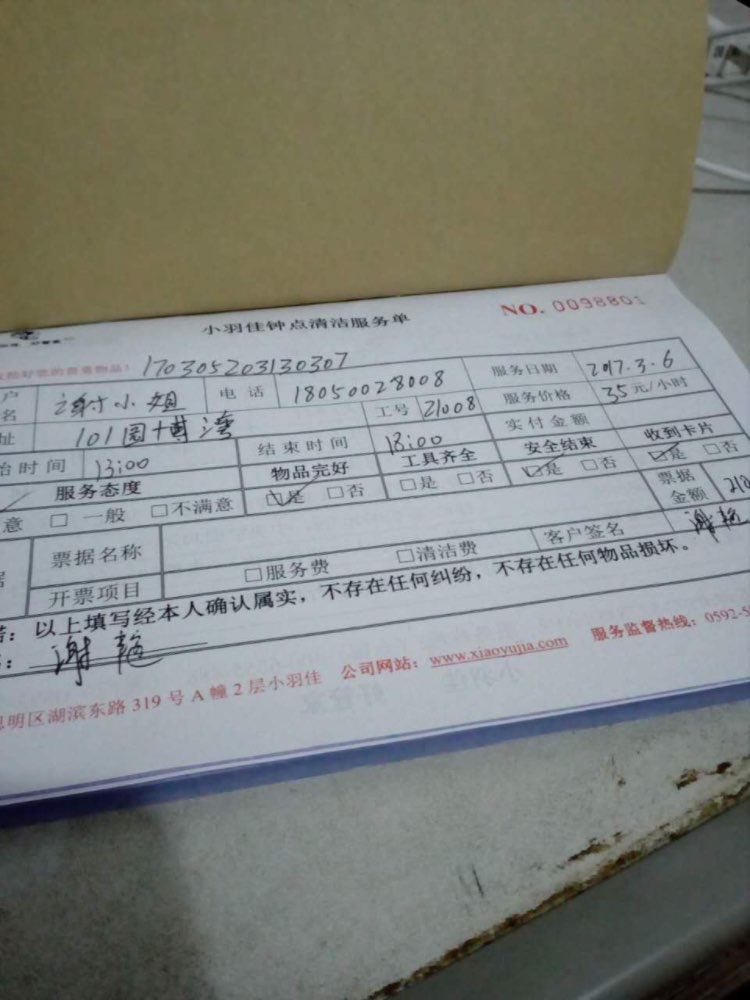 小羽佳钟点清洁服务单 NO. 0098801
170305203130307
户名 谢小姐 电话 18050028008 服务日期 2017.3.6
址 101国 湾 工号 21008 服务价格 35元/小时
始时间 13:00 结束时间 18:00 实付金额
服务态度 物品完好 工具齐全 安全结束 收到卡片
意 □ 一般 □不满意 ☑是 □否 □是 □否 ☑是 □否 ☑是 □否
票据名称 客户签名 票据金额 210
开票项目 □服务费 □清洁费
：以上填写经本人确认属实，不存在任何纠纷，不存在任何物品损坏。
：谢
思明区湖滨东路319号A幢2层小羽佳 公司网站：www.xiaoyujia.com 服务监督热线：0592-5